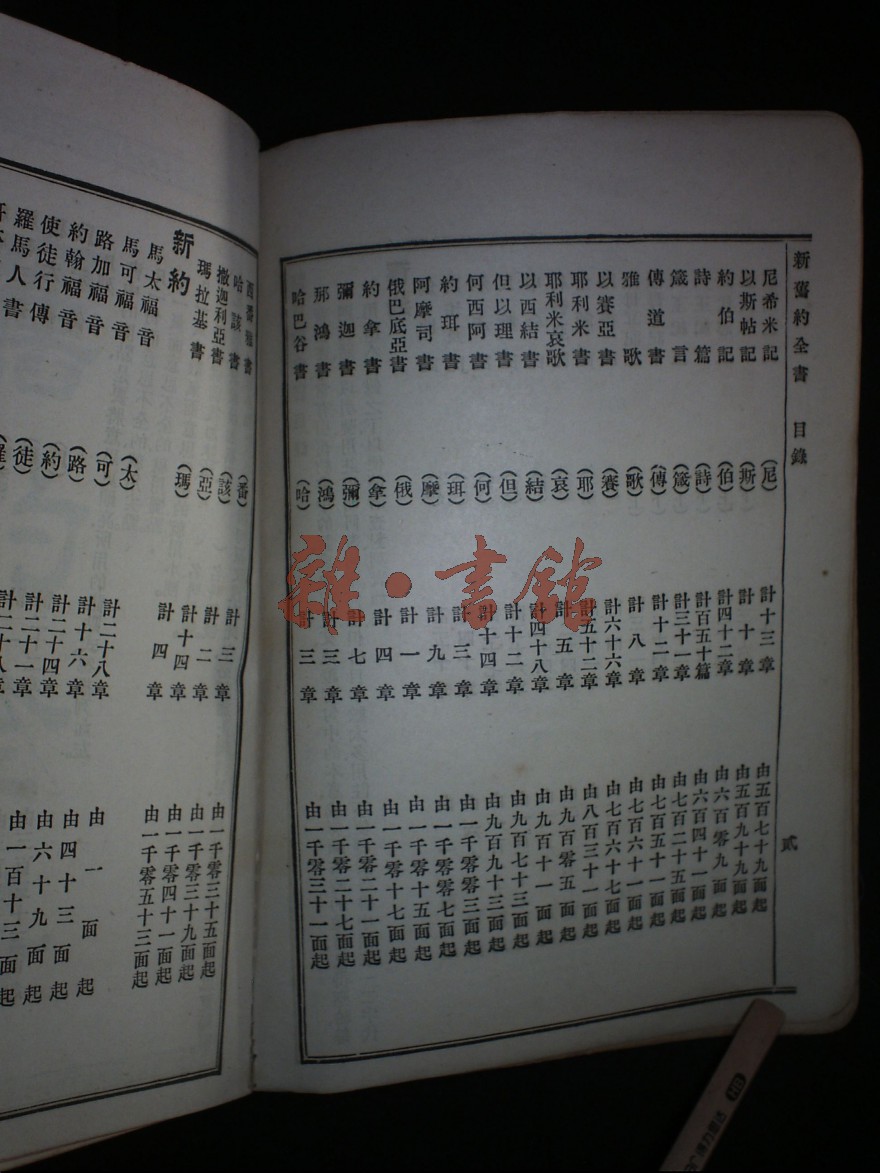 新舊約全書 目錄 貳
尼希米記 (尼) 計十三章 由五百七十九面起
以斯帖記 (斯) 計十章 由五百九十九面起
約伯記 (伯) 計四十二章 由六百零九面起
詩篇 (詩) 計百五十篇 由六百四十一面起
箴言 (箴) 計三十一章 由七百二十五面起
傳道書 (傳) 計十二章 由七百五十一面起
雅歌 (歌) 計八章 由七百六十一面起
以賽亞書 (賽) 計六十六章 由七百六十七面起
耶利米書 (耶) 計五十二章 由八百三十一面起
耶利米哀歌 (哀) 計五章 由九百零五面起
以西結書 (結) 計四十八章 由九百十一面起
但以理書 (但) 計十二章 由九百七十三面起
何西阿書 (何) 計十四章 由九百九十三面起
約珥書 (珥) 計三章 由一千零零三面起
阿摩司書 (摩) 計九章 由一千零零七面起
俄巴底亞書 (俄) 計一章 由一千零十五面起
約拿書 (拿) 計四章 由一千零十七面起
彌迦書 (彌) 計七章 由一千零二十一面起
那鴻書 (鴻) 計三章 由一千零二十七面起
哈巴谷書 (哈) 計三章 由一千零三十一面起
西番雅書 (番) 計三章 由一千零三十五面起
哈該書 (該) 計二章 由一千零三十九面起
撒迦利亞書 (亞) 計十四章 由一千零四十一面起
瑪拉基書 (瑪) 計四章 由一千零五十三面起
新約
馬太福音 (太) 計二十八章 由一面起
馬可福音 (可) 計十六章 由四十三面起
路加福音 (路) 計二十四章 由六十九面起
約翰福音 (約) 計二十一章 由一百十三面起
使徒行傳 (徒) 計二十八章
羅馬人書 (羅)
雜·書館
HB